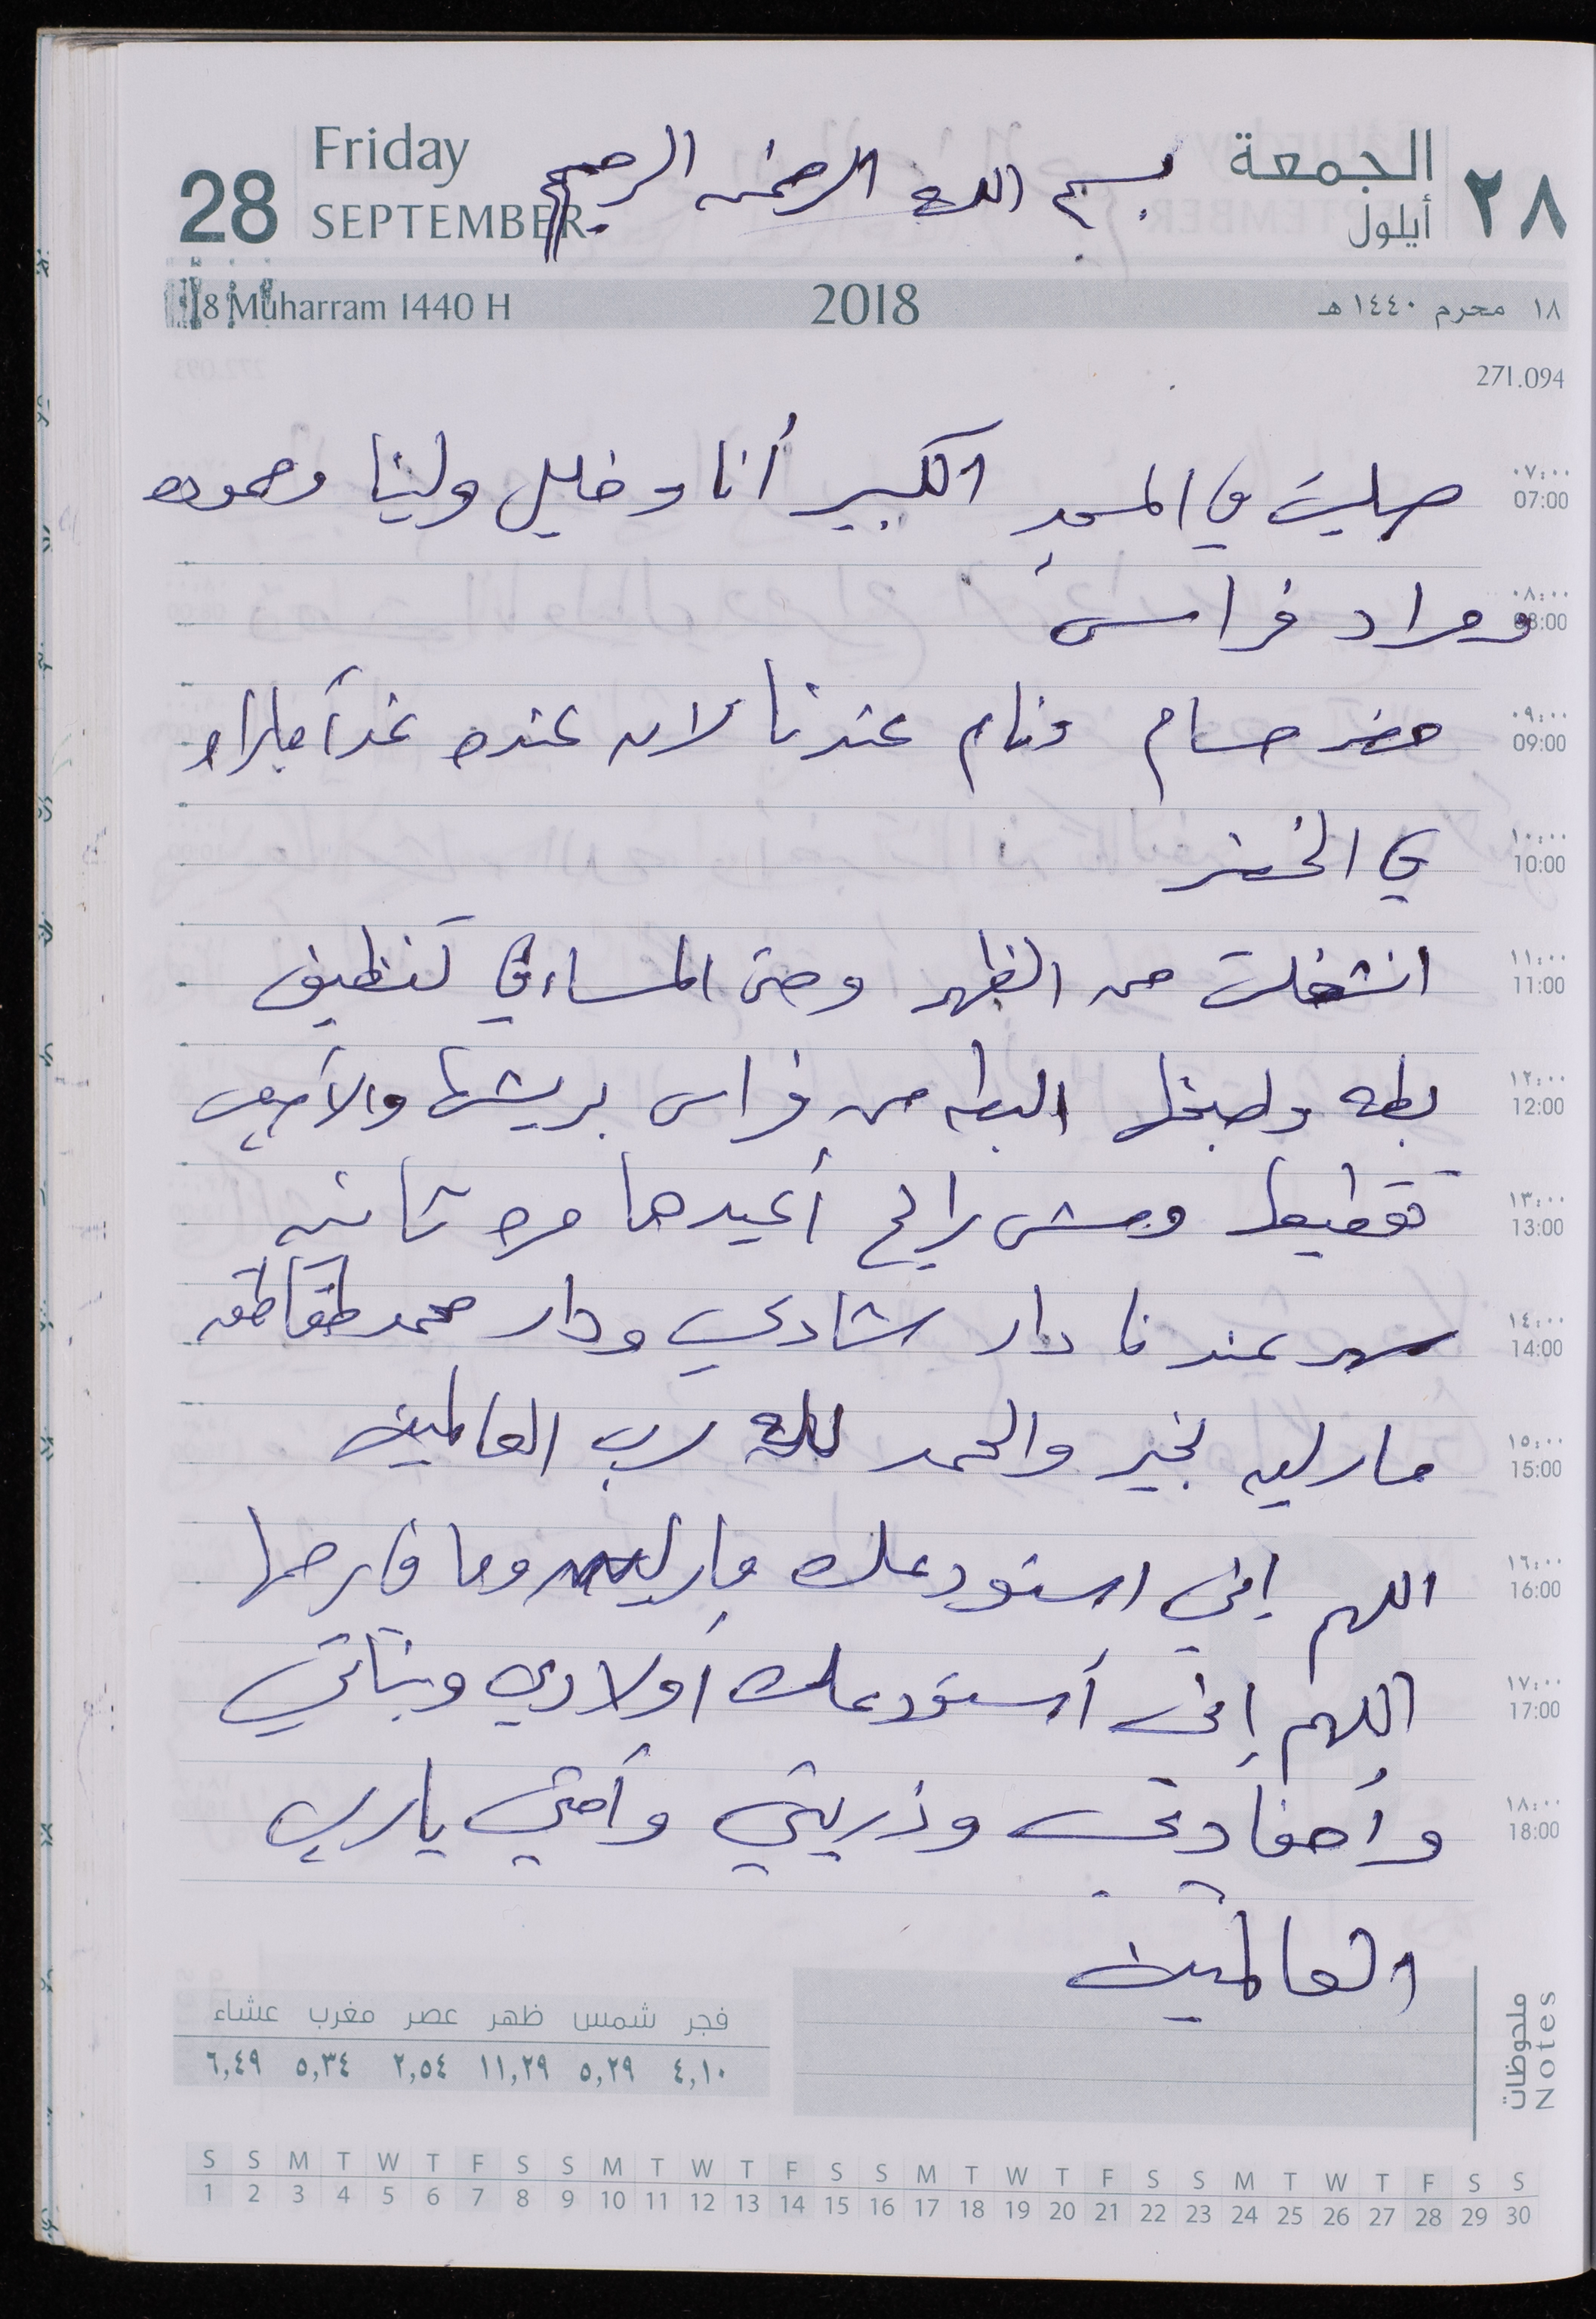 28 Friday SEPTEMBER
٢٨ الجمعة أيلول
بسم الله الرحمن الرحيم
18 Muharram 1440 H 2018 ١٨ محرم ١٤٤٠ هـ
271.094
٠٧:٠٠ 07:00
صليت في المسجد الكبير أنا وخليل ولينا وحموده
٠٨:٠٠ 08:00
ومراد فراس
٠٩:٠٠ 09:00
حضر حسام ونام عندنا لان عنده غداً مباراه
١٠:٠٠ 10:00
في الخضر
١١:٠٠ 11:00
انشغلت من الظهر وحتى المساء في تنظيف
١٢:٠٠ 12:00
بطه وطبخها البطه من فراس بريشها والأصعب
١٣:٠٠ 13:00
تقطيعها ومش رايح أعيدها مره ثانيه
١٤:٠٠ 14:00
سهر عندنا دار شادي ودار محمد طقاطقه
١٥:٠٠ 15:00
مارلين بخير والحمد لله رب العالمين
١٦:٠٠ 16:00
اللهم إني استودعك مارلين وما في رحمها
١٧:٠٠ 17:00
اللهم إني أستودعك أولادي وبناتي
١٨:٠٠ 18:00
وأحفادي وذريتي وأمتي يا رب
العالمين
ملحوظات Notes
فجر شمس ظهر عصر مغرب عشاء
٤,١٠ ٥,٢٩ ١١,٢٩ ٢,٥٤ ٥,٣٤ ٦,٤٩
S S M T W T F S S M T W T F S S M T W T F S S M T W T F S S
1 2 3 4 5 6 7 8 9 10 11 12 13 14 15 16 17 18 19 20 21 22 23 24 25 26 27 28 29 30